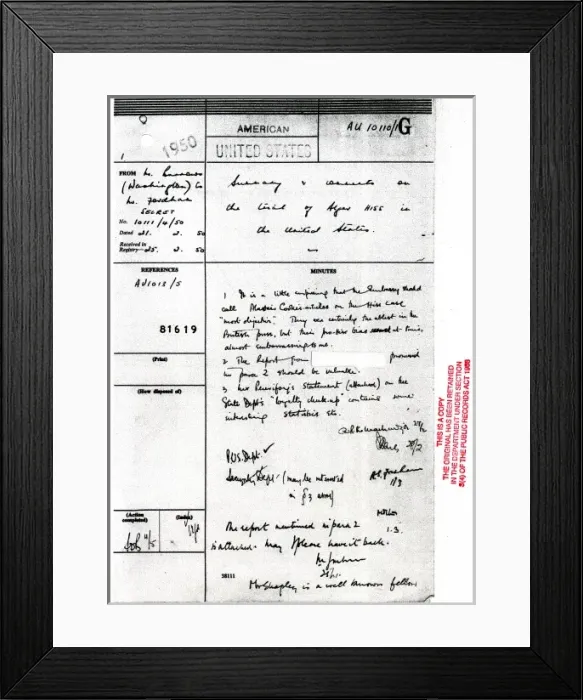 AMERICAN
AU 10110/1G
1950
UNITED STATES
FROM
(Washington) to
SECRET
No. 10111/4/50
Dated 21. 2. 50
Received in
Registry 25. 2. 50
Summary & comments on
the trial of Alger Hiss in
the United States.
REFERENCES
AU1015/5
81619
(Print)
(How disposed of)
(Action
completed)
(Index)
MINUTES
1 It is a little surprising that the Embassy should
call Alistair Cooke's articles on the Hiss case
"most objective". They are certainly the ablest in the
British press, but their pro-Hiss bias at times,
almost embarrassing to me.
2 The Report from promised
in para 2 should be valuable.
3 Statement (attached) on the
State Dept's "loyalty check-up" contains some
interesting statistics etc.
P.U.S. Dept.
Security Dept. (may be interested
in § 3 above)
1/3
The report mentioned in para 2
1.3.
is attached. May I please have it back.
is a well known fellow
38111
THIS IS A COPY
THE ORIGINAL HAS BEEN RETAINED
IN THE DEPARTMENT UNDER SECTION
3(4) OF THE PUBLIC RECORDS ACT 1958